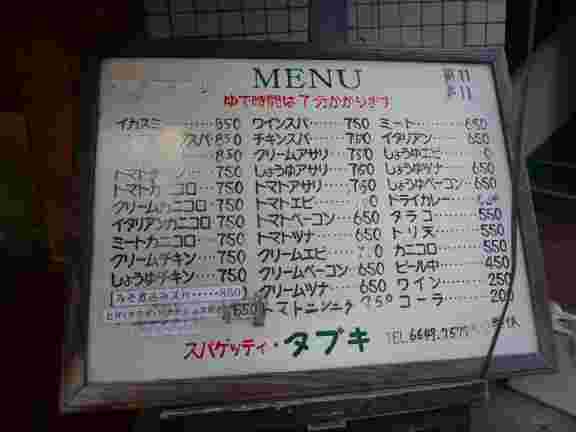 MENU
ゆで時間は7分かかります
イカスミ……850
スパ‥850
850
トマト 750
トマトカニコロ 750
クリームカニコロ 750
イタリアンカニコロ 750
ミートカニコロ‥750
クリームチキン……750
しょうゆチキン……750
みそ煮込みスパ……850
650
ワインスパ……750
チキンスパ……750
クリームアサリ…750
しょうゆアサリ…750
トマトアサリ…750
トマトエビ……0
トマトベーコン…650
トマトツナ……650
クリームエビ……0
クリームベーコン…650
クリームツナ……650
トマトニンニク 750
ミート……650
イタリアン……650
しょうゆエビ……0
しょうゆツナ……650
しょうゆベーコン…650
ドライカレー
タラコ……550
トリ天……550
カニコロ……550
ビール中……450
ワイン……250
コーラ……200
スパゲッティ・タブキ
TEL.6649.7575